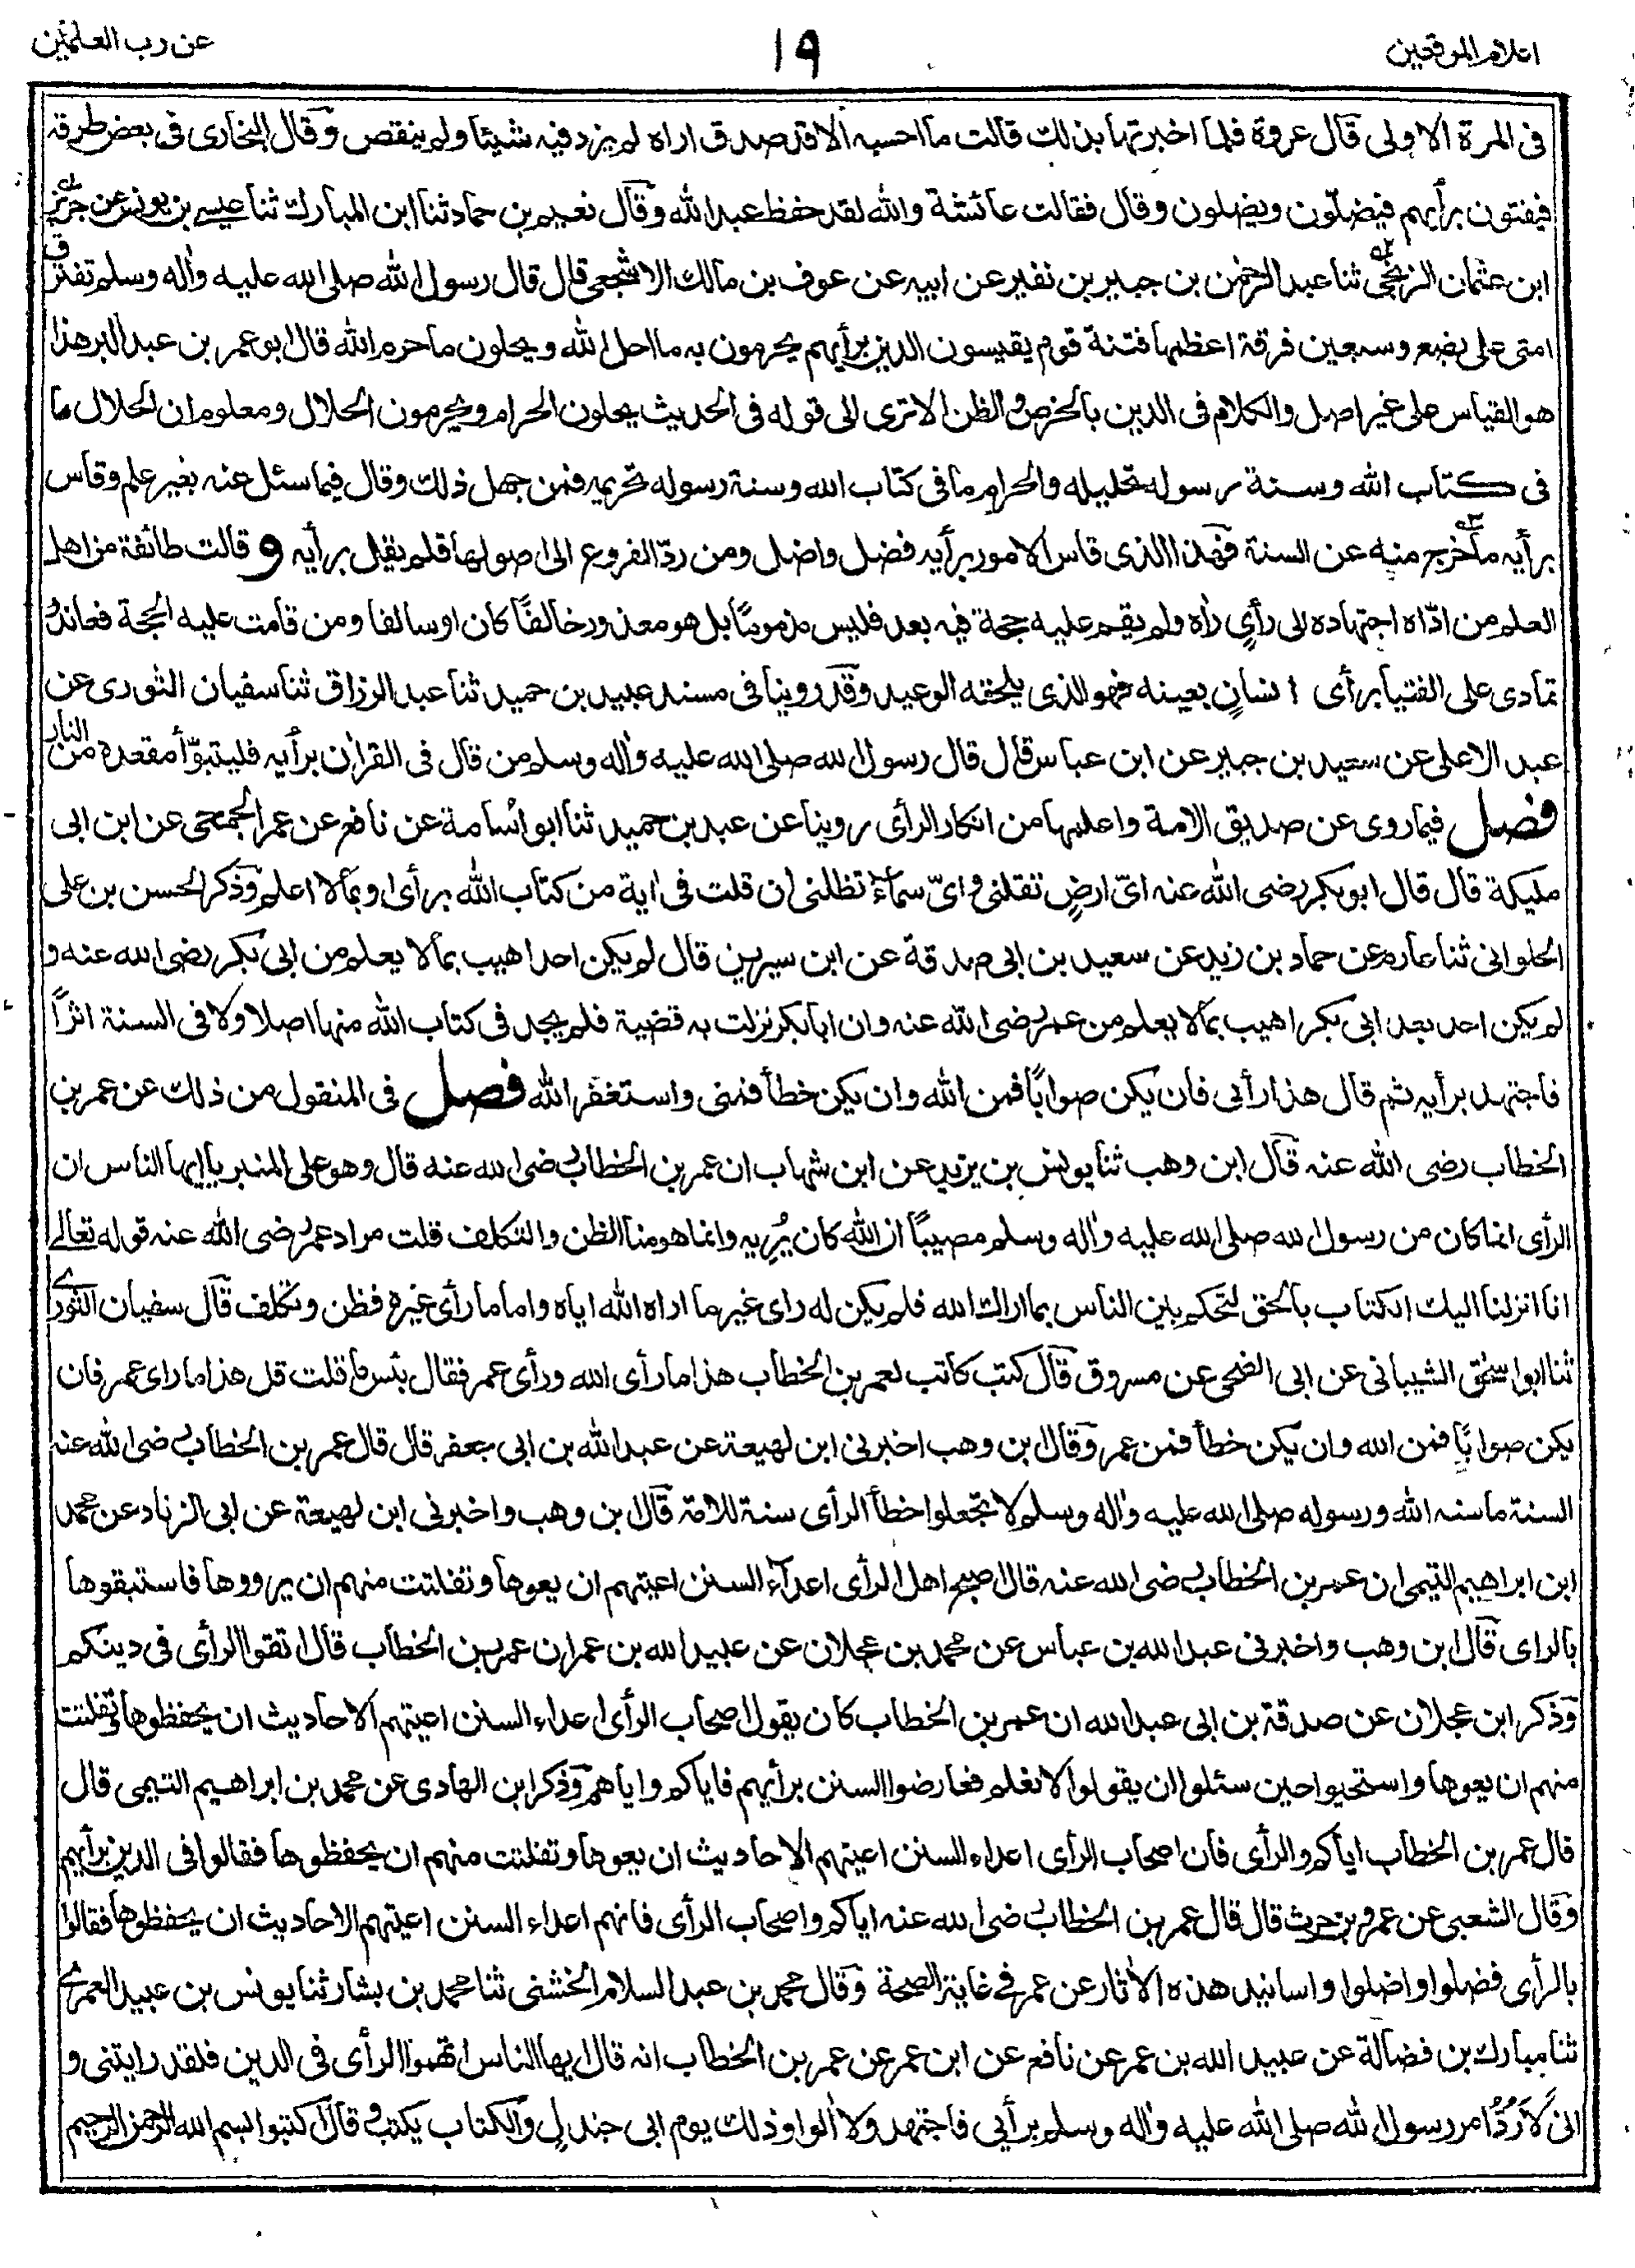 اعلام الموقعين
١٩
عن رب العلمين
فى المرة الاولى قال عروة فلما اخبرتها بذلك قالت ما احسبه الا قد صدق اراه لم يزد فيه شيئا ولم ينقص وقال البخارى فى بعض طرقه
فيفتون برأيهم فيضلّون ويضلون وقال فقالت عائشة والله لقد حفظ عبد الله وقال نعيم بن حماد ثنا ابن المبارك ثنا عيسے بن يونس عن جريز
ابن عثمان الزنجى ثنا عبد الرحمٰن بن جبير بن نفير عن ابيه عن عوف بن مالك الاشجعى قال قال رسول الله صلى الله عليه واٰله وسلم تفترق
امتى على بضع وسبعين فرقة اعظمها فتنة قوم يقيسون الدين برأيهم يحرمون به ما احل الله ويحلون ما حرم الله قال ابو عمر بن عبد البر هذا
هو القياس على غير اصل والكلام فى الدين بالخرص والظن الا ترى الى قوله فى الحديث يحلون الحرام ويحرمون الحلال ومعلوم ان الحلال ما
فى كتاب الله وسنة رسوله تحليله والحرام ما فى كتاب الله وسنة رسوله تحريمه فمن جهل ذلك وقال فيما سئل عنه بغير علم وقاس
برأيه ما خرج منه عن السنة فهذا الذى قاس الامور برأيه فضل واضل ومن ردّ الفروع الى اصولها فلم يقل برأيه و قالت طائفة من اهل
العلم من ادّاه اجتهاده الى رأيٍ رأه ولم يقم عليه حجة فيه بعد فليس مذموما بل هو معذور خالفًا كان او سالفا ومن قامت عليه الحجة فعاند و
تمادى على الفتيا برأى انسانٍ بعينه فهو الذى يلحقه الوعيد وقد روينا فى مسند عبيد بن حميد ثنا عبد الرزاق ثنا سفيان الثورى عن
عبد الاعلى عن سعيد بن جبير عن ابن عباس قال قال رسول الله صلى الله عليه واٰله وسلم من قال فى القراٰن برأيه فليتبوّأ مقعده من النار
فصل فيما روى عن صديق الامة واعلمها من انكار الرأى روينا عن عبد بن حميد ثنا ابو اُسامة عن نافع عن عمر الجمحى عن ابن ابى
مليكة قال قال ابو بكر رضى الله عنه اىّ ارضٍ تقلنى و اىّ سماءٍ تظلنى ان قلت فى اٰية من كتاب الله برأى او بما لا اعلم وذكر الحسن بن على
الحلوانى ثنا عارم عن حماد بن زيد عن سعيد بن ابى صدقة عن ابن سيرين قال لم يكن احد اهيب بما لا يعلم من ابى بكر رضى الله عنه و
لم يكن احد بعد ابى بكر اهيب بما لا يعلم من عمر رضى الله عنه وان ابا بكر نزلت به قضية فلم يجد فى كتاب الله منها اصلا ولا فى السنة اثراً
فاجتهد برأيه ثم قال هذا رأيى فان يكن صوابًا فمن الله وان يكن خطأ فمنى واستغفر الله فصل فى المنقول من ذلك عن عمر بن
الخطاب رضى الله عنه قال ابن وهب ثنا يونس بن يزيد عن ابن شهاب ان عمر بن الخطاب رضى الله عنه قال وهو على المنبر يا ايها الناس ان
الرأى انما كان من رسول الله صلى الله عليه واٰله وسلم مصيبًا ان الله كان يُرِيه وانما هو منا الظن والتكلف قلت مراد عمر رضى الله عنه قوله تعالے
انا انزلنا اليك الكتاب بالحق لتحكم بين الناس بما اراك الله فلم يكن له راى غير ما اراه الله اياه واما ما رأى غيره فظن وتكلف قال سفيان الثورے
ثنا ابو اسحٰق الشيبانى عن ابى الضحى عن مسروق قال كتب كاتب لعمر بن الخطاب هذا ما رأى الله ورأى عمر فقال بئس ما قلت قل هذا ما راى عمر فان
يكن صوابًا فمن الله وان يكن خطأ فمن عمر وقال بن وهب اخبرنى ابن لهيعة عن عبد الله بن ابى جعفر قال قال عمر بن الخطاب رضى الله عنه
السنة ما سنه الله ورسوله صلى الله عليه واٰله وسلم لا تجعلوا خطأ الرأى سنة للامة قال بن وهب واخبرنى ابن لهيعة عن ابى الزناد عن محمد
ابن ابراهيم التيمى ان عمر بن الخطاب رضى الله عنه قال اصبح اهل الرأى اعداء السنن اعيتهم ان يعوها وتفلتت منهم ان يرووها فاستبقوها
بالراى قال ابن وهب واخبرنى عبد الله بن عباس عن محمد بن عجلان عن عبيد الله بن عمر ان عمر بن الخطاب قال اتقوا الرأى فى دينكم
وذكر ابن عجلان عن صدقة بن ابى عبد الله ان عمر بن الخطاب كان يقول اصحاب الرأى اعداء السنن اعيتهم الاحاديث ان يحفظوها وتفلتت
منهم ان يعوها واستحيوا حين سئلوا ان يقولوا لا نعلم فعارضوا السنن برأيهم فاياكم واياهم وذكر ابن الهادى عن محمد بن ابراهيم التيمى قال
قال عمر بن الخطاب اياكم والرأى فان اصحاب الرأى اعداء السنن اعيتهم الاحاديث ان يعوها وتفلتت منهم ان يحفظوها فقالوا فى الدين برأيهم
وقال الشعبى عن عمرو بن حرث قال قال عمر بن الخطاب رضى الله عنه اياكم واصحاب الرأى فانهم اعداء السنن اعيتهم الاحاديث ان يحفظوها فقالوا
بالرأى فضلوا واضلوا واسانيد هذه الاٰثار عن عمر فے غاية الصحة وقال محمد بن عبد السلام الخشنى ثنا محمد بن بشار ثنا يونس بن عبيد العمرے
ثنا مبارك بن فضالة عن عبيد الله بن عمر عن نافع عن ابن عمر عن عمر بن الخطاب انه قال ايها الناس اتهموا الرأى فى الدين فلقد رايتنى و
انى لَاَرُدُّ امر رسول الله صلى الله عليه واٰله وسلم برأيى فاجتهد ولا اٰلوا وذلك يوم ابى جندل والكتاب يكتب وقال اكتبوا بسم الله الرحمن الرحيم